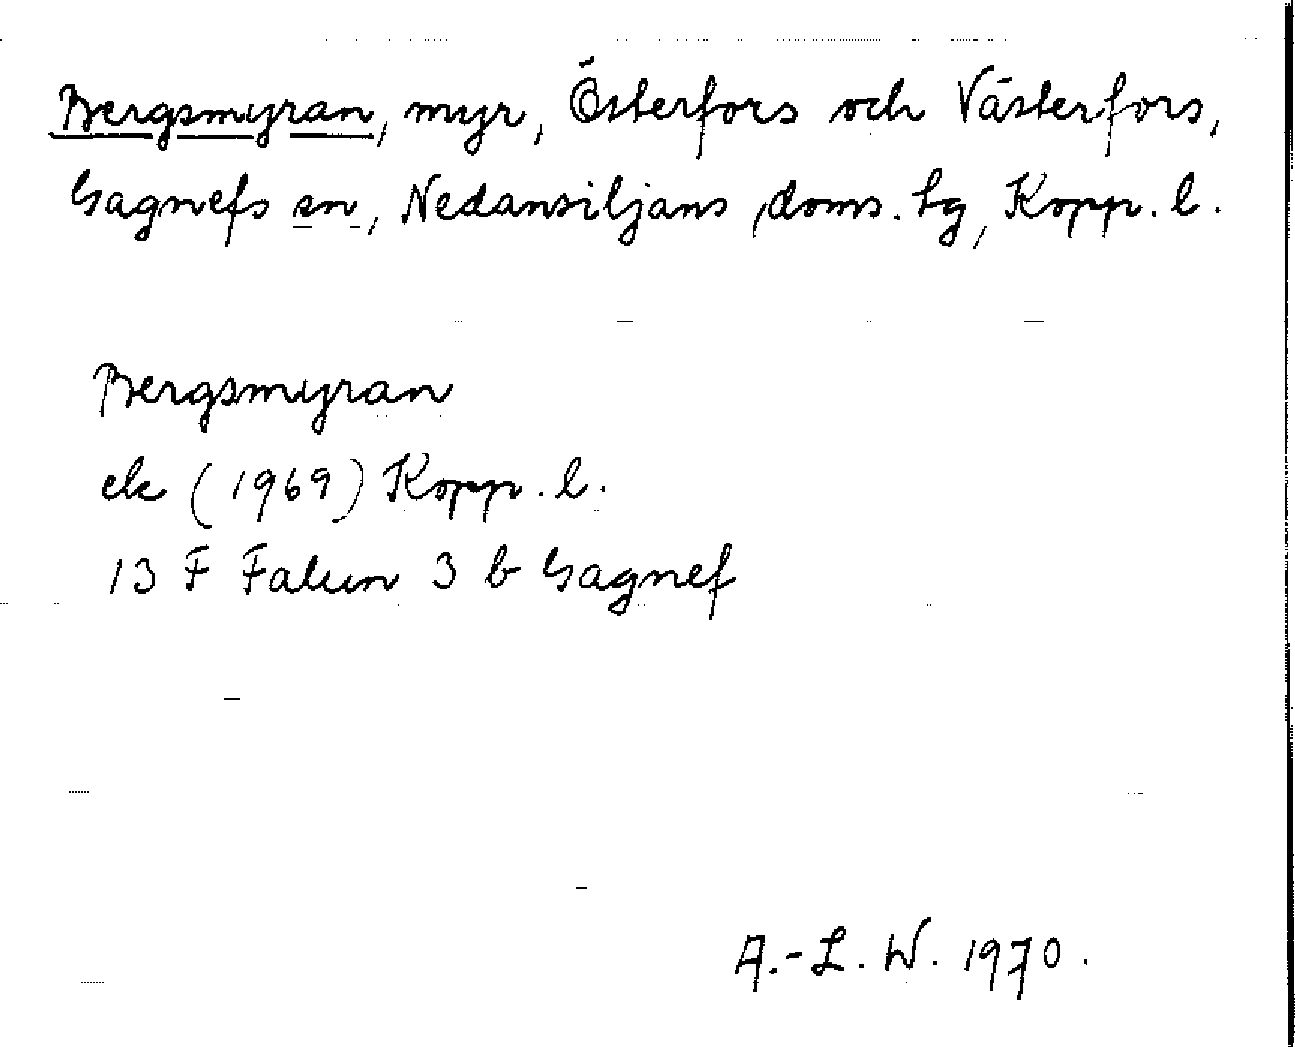 Bergsmyran, myr, Österfors och Västerfors,
Gagnefs sn, Nedansiljans doms. tg, Kopp. l.
Bergsmyran
ek (1969) Kopp. l.
13 F Falun 3 b Gagnef
A.-L. W. 1970.